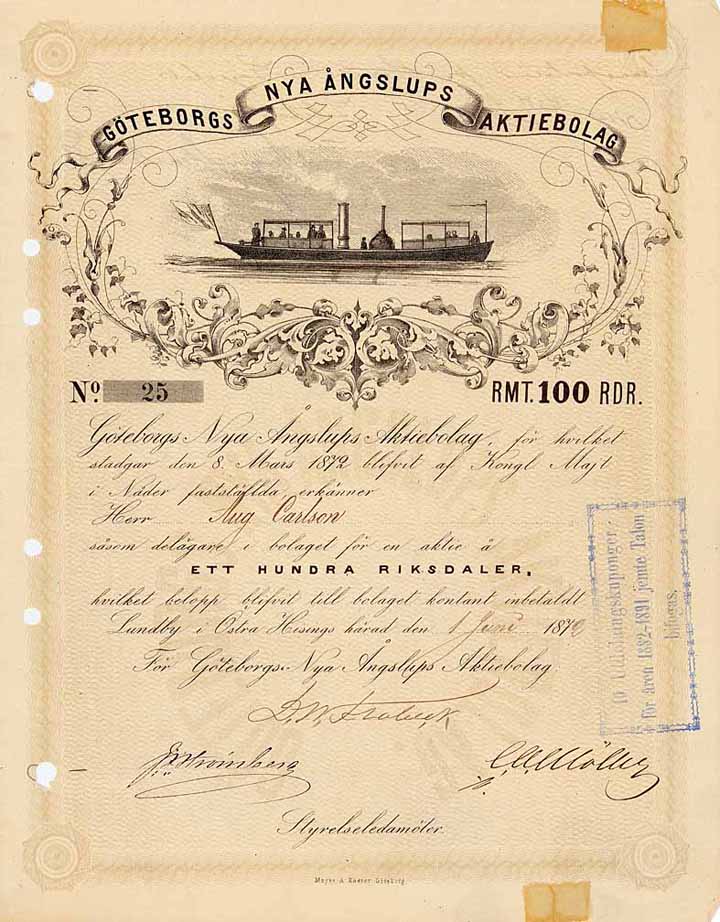 GÖTEBORGS NYA ÅNGSLUPS AKTIEBOLAG
No. 25 RMT. 100 RDR.
Göteborgs Nya Ångslups Aktiebolag, för hvilket
stadgar den 8. Mars 1872 blifvit af Kongl Majt
i Nåder fastställda erkänner
Herr Aug Carlson
såsom delägare i bolaget för en aktie å
ETT HUNDRA RIKSDALER,
hvilket belopp blifvit till bolaget kontant inbetaldt
Lundby i Östra Hisings härad den 1 Juni 1872
För Göteborgs Nya Ångslups Aktiebolag
Strömberg
Styrelseledamöter.
10 Utdelningskuponger
för åren 1882-1891 jemte Talon
bifogas.
Göteborg